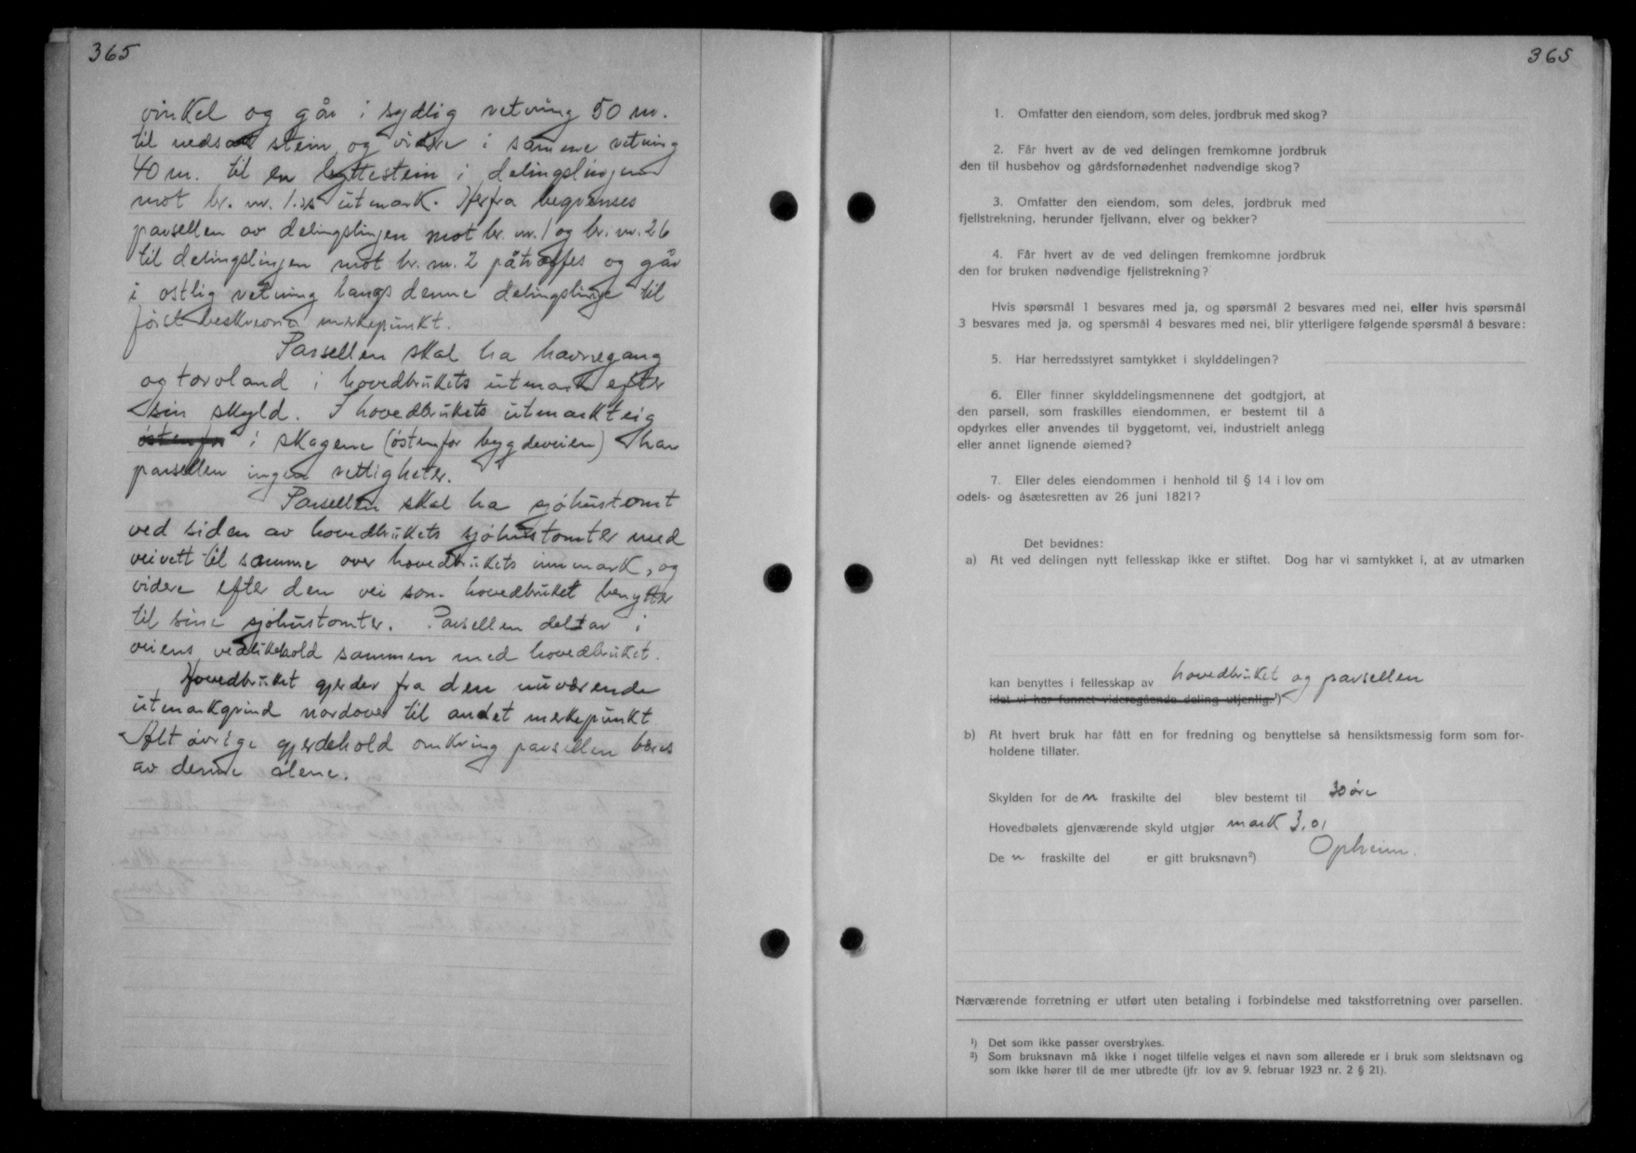 365
vinkel og går i sydlig retning 50 m.
til nedsatt stein og videre i samme retning
40 m. til en byttestein i delingslinjen
mot br. nr. 1.s utmark. Herfra begrenses
parsellen av delingslinjen mot br. nr. 1 og br. nr. 26
til delingslinjen mot br. nr. 2 påtreffes og går
i ostlig retning langs denne delingslinje til
först beskrevne merkepunkt.
Parsellen skal ha havnegang
og torvland i hovedbrukets utmark efter
sin skyld. I hovedbrukets utmarkteig
östenfor i skagene (östenfor bygdeveien) har
parsellen ingen rettigheter.
Parsellen skal ha sjöhustomt
ved siden av hovedbrukets sjöhustomter med
veirett til samme over hovedbrukets innmark, og
videre efter den vei som hovedbruket benytter
til sine sjöhustomter. Parsellen deltar i
veiens vedlikehold sammen med hovedbruket.
Hovedbruket gjerder fra den nuværende
utmarkgrind nordover til andet merkepunkt.
Alt övrige gjerdehold omkring parsellen bæres
av denne alene.
365
1. Omfatter den eiendom, som deles, jordbruk med skog?
2. Får hvert av de ved delingen fremkomne jordbruk
den til husbehov og gårdsfornødenhet nødvendige skog?
3. Omfatter den eiendom, som deles, jordbruk med
fjellstrekning, herunder fjellvann, elver og bekker?
4. Får hvert av de ved delingen fremkomne jordbruk
den for bruken nødvendige fjellstrekning?
Hvis spørsmål 1 besvares med ja, og spørsmål 2 besvares med nei, eller hvis spørsmål
3 besvares med ja, og spørsmål 4 besvares med nei, blir ytterligere følgende spørsmål å besvare:
5. Har herredsstyret samtykket i skylddelingen?
6. Eller finner skylddelingsmennene det godtgjort, at
den parsell, som fraskilles eiendommen, er bestemt til å
opdyrkes eller anvendes til byggetomt, vei, industrielt anlegg
eller annet lignende øiemed?
7. Eller deles eiendommen i henhold til § 14 i lov om
odels- og åsætesretten av 26 juni 1821?
Det bevidnes:
a) At ved delingen nytt fellesskap ikke er stiftet. Dog har vi samtykket i, at av utmarken
kan benyttes i fellesskap av hovedbruket og parsellen
idet vi har funnet videregående deling utjenlig.¹)
b) At hvert bruk har fått en for fredning og benyttelse så hensiktsmessig form som for-
holdene tillater.
Skylden for den fraskilte del blev bestemt til 30 öre
Hovedbølets gjenværende skyld utgjør mark 3,01
Den fraskilte del er gitt bruksnavn²) Opheim.
Nærværende forretning er utført uten betaling i forbindelse med takstforretning over parsellen.
¹) Det som ikke passer overstrykes.
²) Som bruksnavn må ikke i noget tilfelle velges et navn som allerede er i bruk som slektsnavn og
som ikke hører til de mer utbredte (jfr lov av 9. februar 1923 nr. 2 § 21).